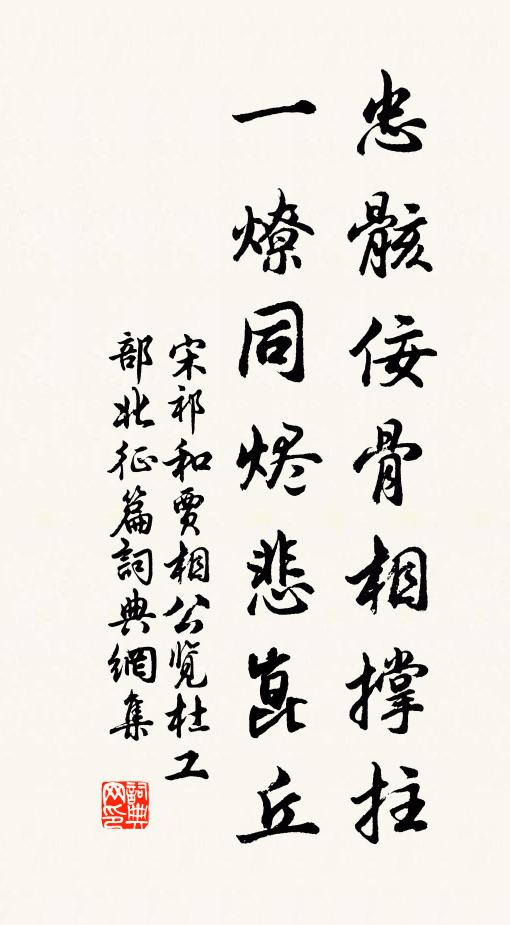 忠骸佞骨相撐拄
一燎同烬悲崑丘
宋祁和賈相公览杜工
部北征篇詞典網集
詞典
网印